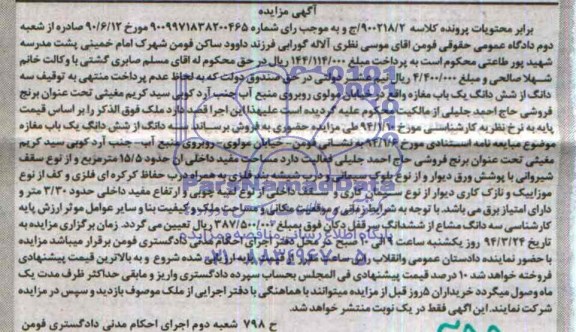 آگهی مزایده
برابر محتویات پرونده کلاسه ۹۰۰۲۱۸/۲/ج و به موجب رای شماره ۹۰۰۹۹۷۱۸۳۸۲۰۰۴۶۵ مورخ ۹۰/۶/۱۲ صادره از شعبه
دوم دادگاه عمومی حقوقی فومن آقای موسی نظری آلاله گورابی فرزند داوود ساکن فومن شهرک امام خمینی پشت مدرسه
شهید پور طاعتی محکوم است به پرداخت مبلغ ۱۴۴/۱۱۴/۰۰۰ ریال در حق محکوم له آقای مسلم صابری گشتی با وکالت خانم
شهلا صالحی و مبلغ ۴/۴۰۰/۰۰۰ ریال در حق صندوق دولت که به لحاظ عدم پرداخت منتهی به توقیف سه
دانگ از شش دانگ یک باب مغازه واقع در خیابان مولوی روبروی منبع آب جنب آرد کوبی سید کریم مغیثی تحت عنوان برنج
فروشی حاج احمد جلیلی از مالکیت محکوم علیه گردیده است علیهذا این اجرا قصد دارد ملک فوق الذکر را بر اساس قیمت
پایه به نرخ نظریه کارشناسی مورخ ۹۴/۱/۱۹ طی مزایده حضوری به فروش برساند دانگ از شش دانگ یک باب مغازه
موضوع مبایعه نامه استنادی مورخ به نشانی فومن - خیابان مولوی - روبروی منبع آب - جنب آرد کوبی سید کریم
مغیثی تحت عنوان برنج فروشی حاج احمد جلیلی فعالیت دارد مساحت مفید داخلی آن حدود ۱۵/۵ مترمربع و از نوع سقف
شیروانی با پوشش ورق دیوار و از نوع بلوک سیمانی و درب شیشه بند فلزی به همراه درب حفاظ کرکره ای فلزی و کف از نوع
موزاییک و نازک کاری دیوار از نوع کاری و سقف داخلی از نوع و ارتفاع مفید داخلی حدود ۳/۳۰ متر و
دارای امتیاز برق می باشد. با توجه به شرایط زمانی و موقعیت مکانی و مساحت ملک و کیفیت بنا و سایر عوامل موثر ارزش پایه
کارشناسی سه دانگ مشاع از ششدانگ سرقفل دکان فوق بمبلغ ۳۸۷/۵۰۰/۰۰۰ ریال تعیین می گردد. زمان برگزاری مزایده به
تاریخ ۹۴/۳/۲۴ روز یکشنبه ساعت ۹ الی ۱۰ صبح در محل دفتر اجرای احکام مدنی دادگستری فومن برقرار میباشد مزایده
با حضور نماینده دادستان عمومی وانقلاب راس ساعت مقرر از قیمت پایه اعلامی شده شروع و به بالاترین قیمت پیشنهادی
فروخته خواهد شد ۱۰ درصد قیمت پیشنهادی فی المجلس بحساب سپرده دادگستری واریز و مابقی حداکثر ظرف مدت یک
ماه وصول میگردد خریداران ۵روز قبل از مزایده میتوانند با هماهنگی با دفتر اجرایی از ملک موصوف بازدید و سپس در مزایده
شرکت نمایند. این آگهی فقط در یک نوبت منتشر خواهد شد.
ح ۷۹۸ شعبه دوم اجرای احکام مدنی دادگستری فومن
ParsNamadData